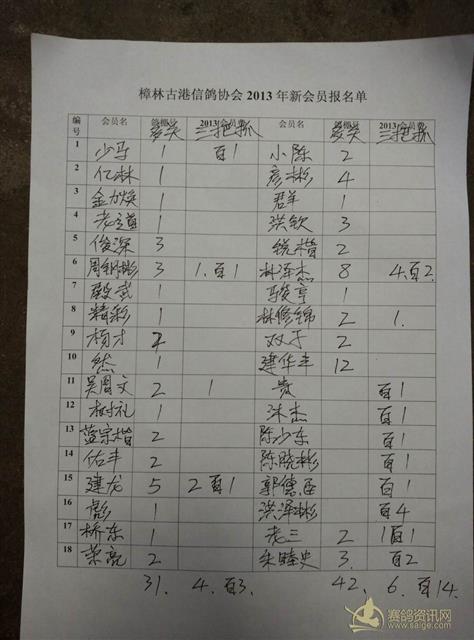 樟林古港信鸽协会 2013 年新会员报名单
编号 会员名 鸽棚号 2013会员费 会员名 鸽棚号 2013会员费
奖头 三把抓 奖头 三把抓
1 少军 1 百1 小陈 2
2 亿林 1 彦彬 4
3 金力焕 1 君羊 1
4 老道 1 洪钦 3
5 俊深 3 锐楷 2
6 周钢彬 3 1.百1 林泽杰 8 4.百2
7 毅武 1 骏亨 1
8 精彩 1 林修锦 2 1.
9 柏才 2 双于 2
10 然 1 建华丰 12
11 吴周文 2 1 贵 百1
12 树礼 1 沐杰 百1
13 蓝宗楷 2 陈少东 百1
14 佑丰 2 陈晓彬 百1
15 建龙 5 2百1 郭德臣 百1
16 彪 1 洪泽彬 百4
17 桥东 1 老三 2 1百1
18 荣亮 2 朱睦史 3. 百2
31. 4.百3. 42. 6.百14.
赛鸽资讯网
www.saige.com